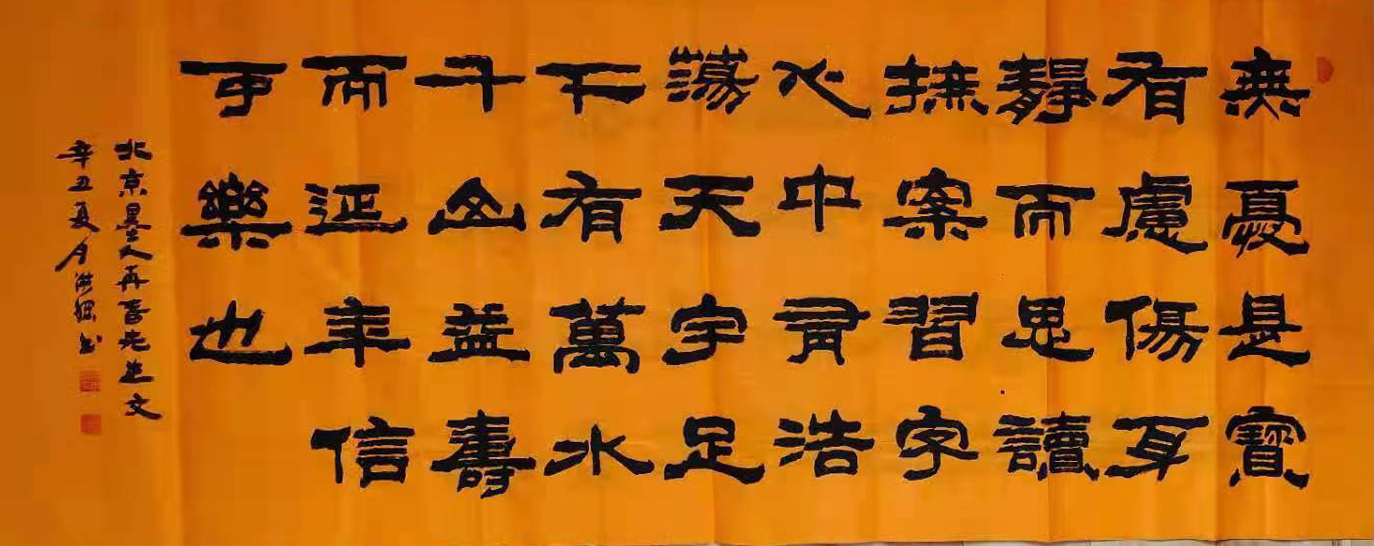 無憂是寶
有慮傷身
靜而思讀
撫案習字
心中浩
蕩天宇足
下有萬水
千山益壽
而延年信
可樂也
北京墨人再喜先生文
辛丑夏月洪书